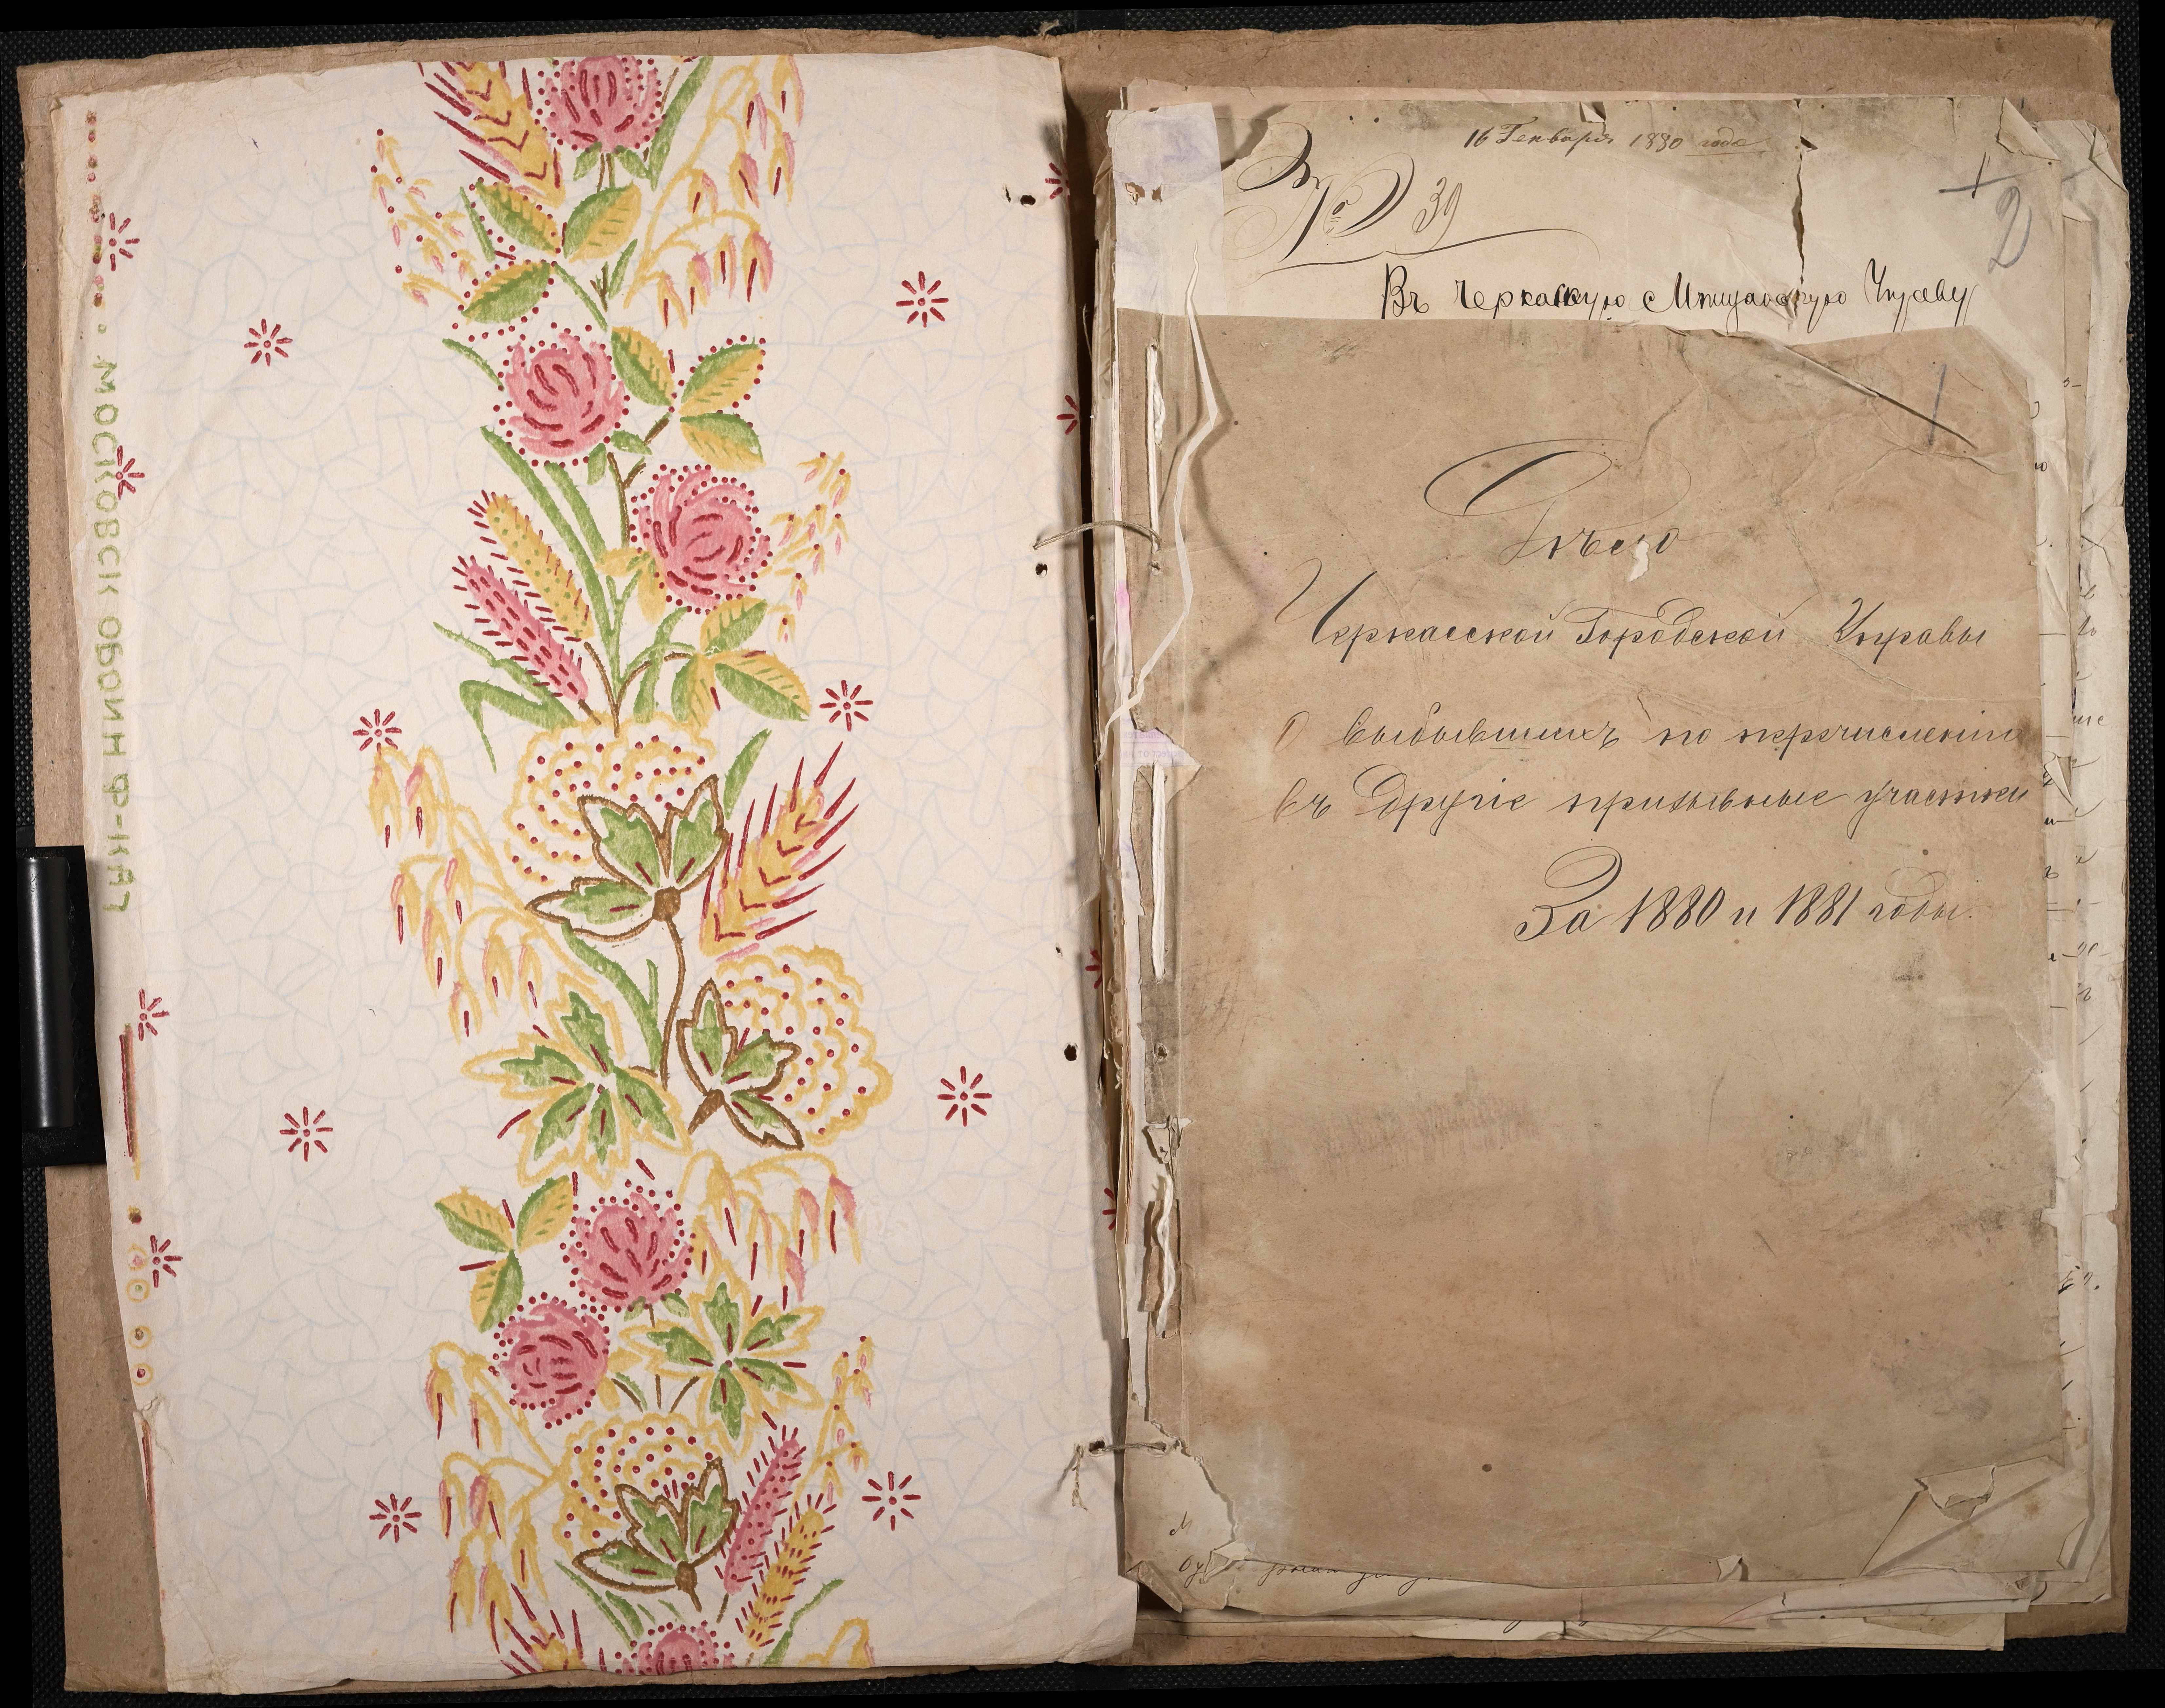 МОСКОВСК ОБОИН Ф-КА
16 Генваря 1880 года
№ 39
2
Въ Черкаскую Мещанскую Управу
1
Дѣло
Черкасской Городской Управы
О выбывшихъ по перечисленію
въ другіе призывные участки
За 1880 и 1881 годы.